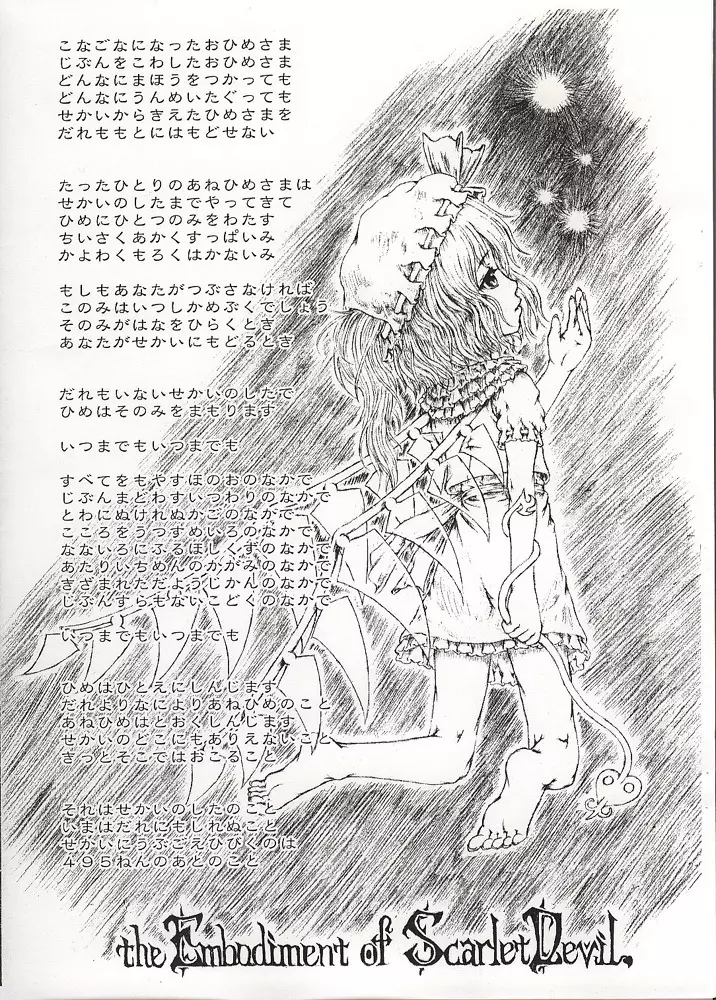 こなごなになったおひめさま
じぶんをこわしたおひめさま
どんなにまほうをつかっても
どんなにうんめいたぐっても
せかいからきえたひめさまを
だれももとにはもどせない
たったひとりのあねひめさまは
せかいのしたまでやってきて
ひめにひとつのみをわたす
ちいさくあかくすっぱいみ
かよわくもろくはかないみ
もしもあなたがつぶさなければ
このみはいつしかめぶくでしょう
そのみがはなをひらくとき
あなたがせかいにもどるとき
だれもいないせかいのしたで
ひめはそのみをまもります
いつまでもいつまでも
すべてをもやすほのおのなかで
じぶんまどわすいつわりのなかで
とわにぬけれぬかごのなかで
こころをうつすめいろのなかで
なないろにふるほしくずのなかで
あたりいちめんのかがみのなかで
きざまれただようじかんのなかで
じぶんすらもないこどくのなかで
いつまでもいつまでも
ひめはひとえにしんじます
だれよりなによりあねひめのこと
あねひめはとおくしんじます
せかいのどこにもありえないこと
きっとそこではおこること
それはせかいのしたのこと
いまはだれにもしれぬこと
せかいにうぶごえひびくのは
495ねんのあとのこと
the Embodiment of Scarlet Devil.